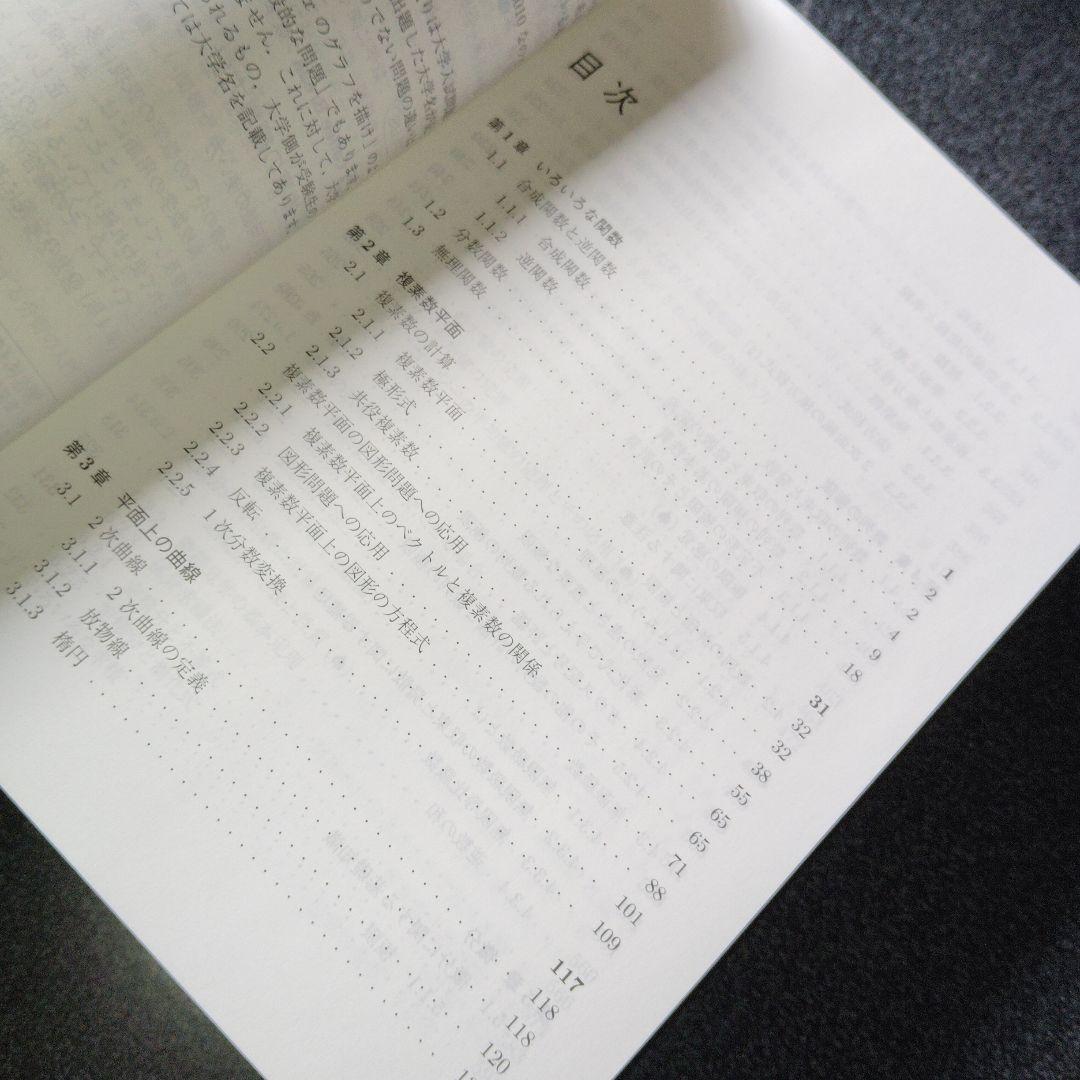 りは大学入試
出題した大学名が
でない問題の違い
のグラフを描け」の
的な問題」でもあります
ません．これに対して，
れるもの，大学側が受験生の
ては大学名を記載してあります
目次
第1章 いろいろな関数 1
1.1 合成関数と逆関数 2
1.1.1 合成関数 2
1.1.2 逆関数 4
1.2 分数関数 9
1.3 無理関数 18
第2章 複素数平面 31
2.1 複素数の計算 32
2.1.1 複素数平面 32
2.1.2 極形式 38
2.1.3 共役複素数 55
2.2 複素数平面の図形問題への応用 65
2.2.1 複素数平面上のベクトルと複素数の関係 65
2.2.2 図形問題への応用 71
2.2.3 複素数平面上の図形の方程式 88
2.2.4 反転 101
2.2.5 1次分数変換 109
第3章 平面上の曲線 117
3.1 2次曲線 118
3.1.1 2次曲線の定義 118
3.1.2 放物線 120
3.1.3 楕円